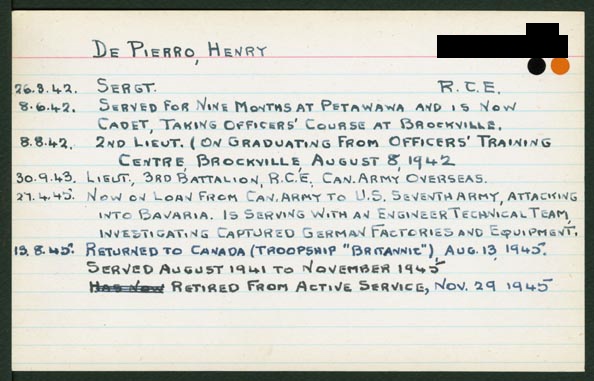 DE PIERRO, HENRY
26.3.42. SERGT. R.C.E.
8.6.42. SERVED FOR NINE MONTHS AT PETAWAWA AND IS NOW
CADET, TAKING OFFICERS' COURSE AT BROCKVILLE.
8.8.42. 2ND LIEUT. (ON GRADUATING FROM OFFICERS' TRAINING
CENTRE, BROCKVILLE, AUGUST 8, 1942
30.9.43. LIEUT., 3RD BATTALION, R.C.E., CAN. ARMY OVERSEAS.
27.4.45. NOW ON LOAN FROM CAN. ARMY TO U.S. SEVENTH ARMY, ATTACKING
INTO BAVARIA. IS SERVING WITH AN ENGINEER TECHNICAL TEAM,
INVESTIGATING CAPTURED GERMAN FACTORIES AND EQUIPMENT.
13.8.45. RETURNED TO CANADA (TROOPSHIP "BRITANNIC"), AUG. 13, 1945.
SERVED AUGUST 1941 TO NOVEMBER 1945
HAS NOW RETIRED FROM ACTIVE SERVICE, NOV. 29 1945